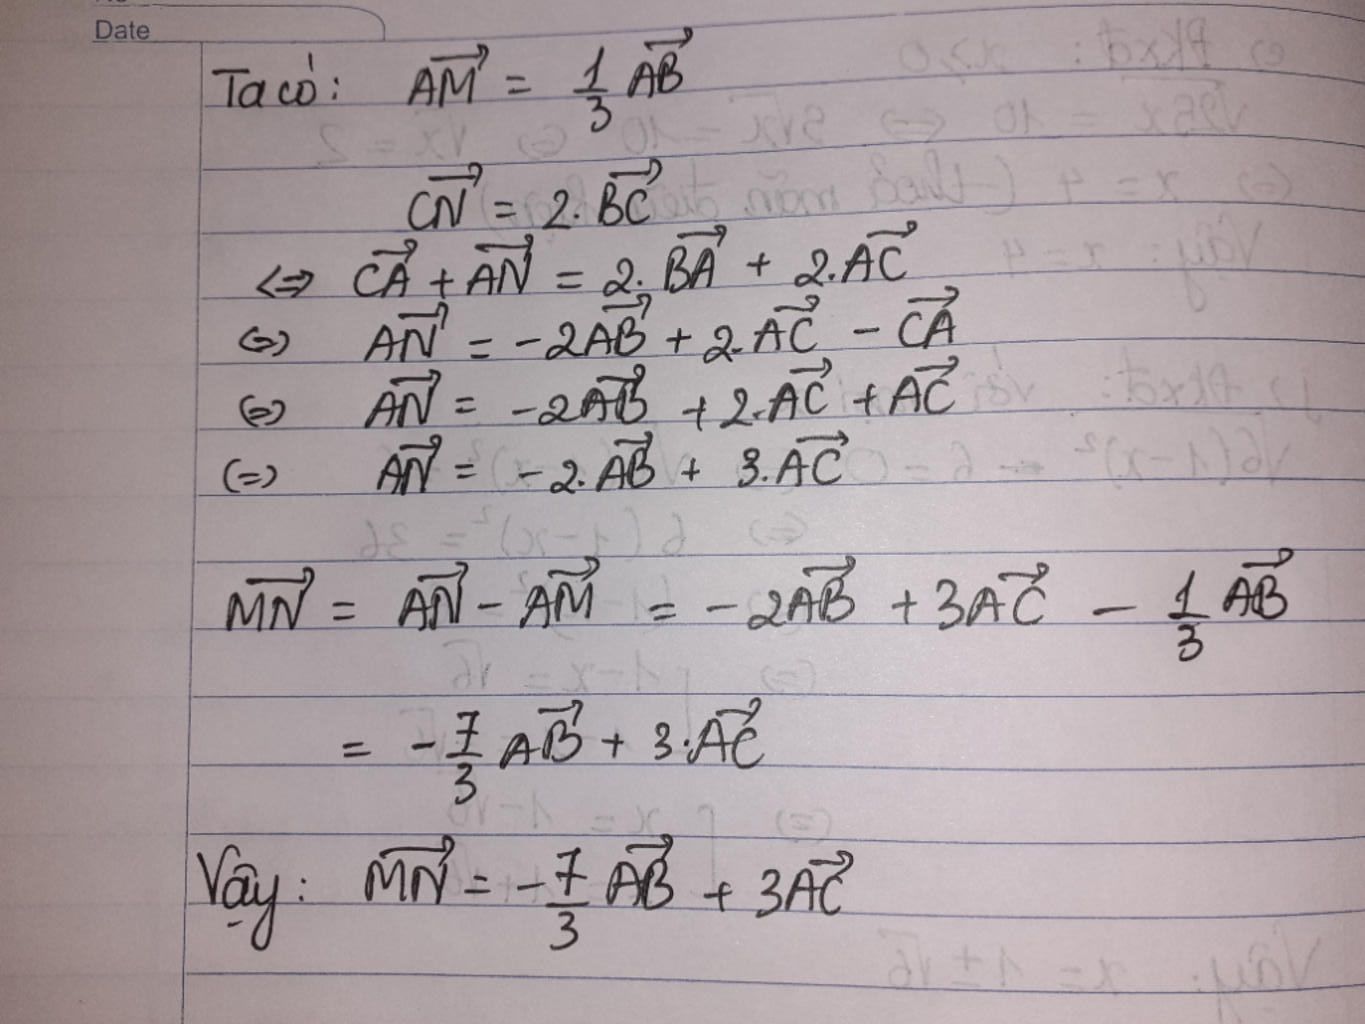 Date
Ta có: $\overrightarrow{AM} = \frac{1}{3} \overrightarrow{AB}$
$\overrightarrow{CN} = 2.\overrightarrow{BC}$
$\Leftrightarrow \overrightarrow{CA} + \overrightarrow{AN} = 2.\overrightarrow{BA} + 2.\overrightarrow{AC}$
$\Leftrightarrow \overrightarrow{AN} = -2\overrightarrow{AB} + 2.\overrightarrow{AC} - \overrightarrow{CA}$
$\Leftrightarrow \overrightarrow{AN} = -2\overrightarrow{AB} + 2.\overrightarrow{AC} + \overrightarrow{AC}$
$\Leftrightarrow \overrightarrow{AN} = -2.\overrightarrow{AB} + 3.\overrightarrow{AC}$
$\overrightarrow{MN} = \overrightarrow{AN} - \overrightarrow{AM} = -2\overrightarrow{AB} + 3\overrightarrow{AC} - \frac{1}{3} \overrightarrow{AB}$
$= -\frac{7}{3} \overrightarrow{AB} + 3.\overrightarrow{AC}$
Vậy: $\overrightarrow{MN} = -\frac{7}{3} \overrightarrow{AB} + 3\overrightarrow{AC}$